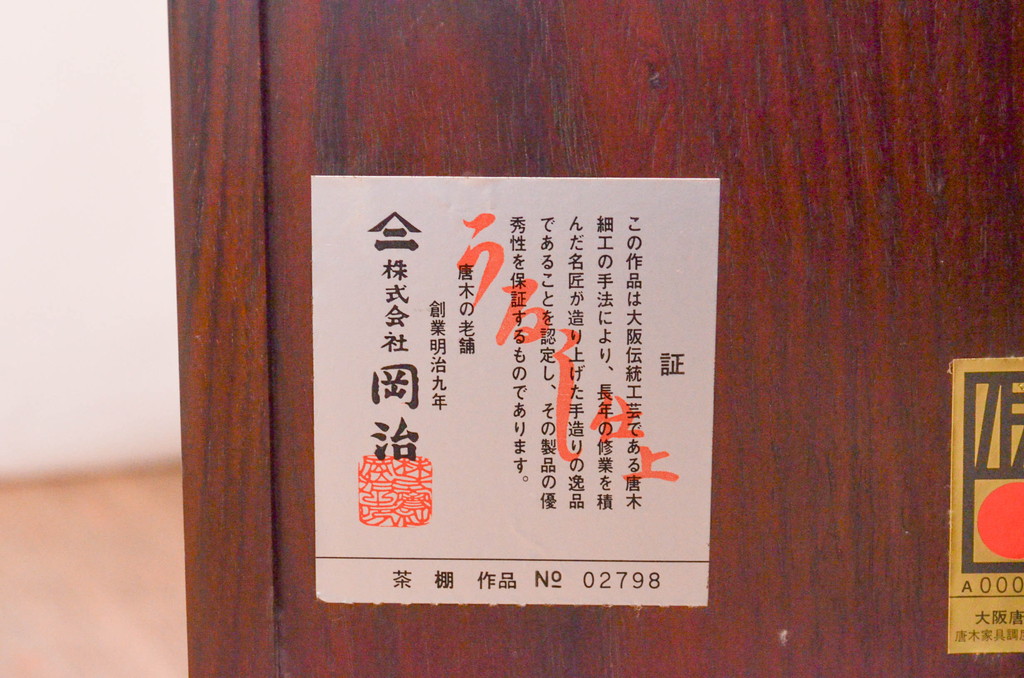 証
この作品は大阪伝統工芸である唐木
細工の手法により、長年の修業を積
んだ名匠が造り上げた手造りの逸品
であることを認定し、その製品の優
秀性を保証するものであります。
うるし仕上
唐木の老舗
創業明治九年
株式会社 岡治
茶棚 作品 № 02798
A000
大阪唐
唐木家具調